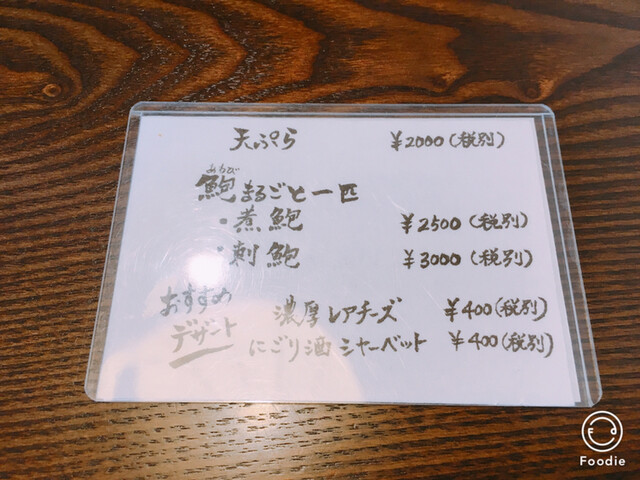 天ぷら ¥2000(税別)
あわび
鮑まるごと一匹
・煮鮑 ¥2500(税別)
・刺鮑 ¥3000(税別)
おすすめ
デザート
濃厚レアチーズ ¥400(税別)
にごり酒シャーベット ¥400(税別)
Fd
Foodie